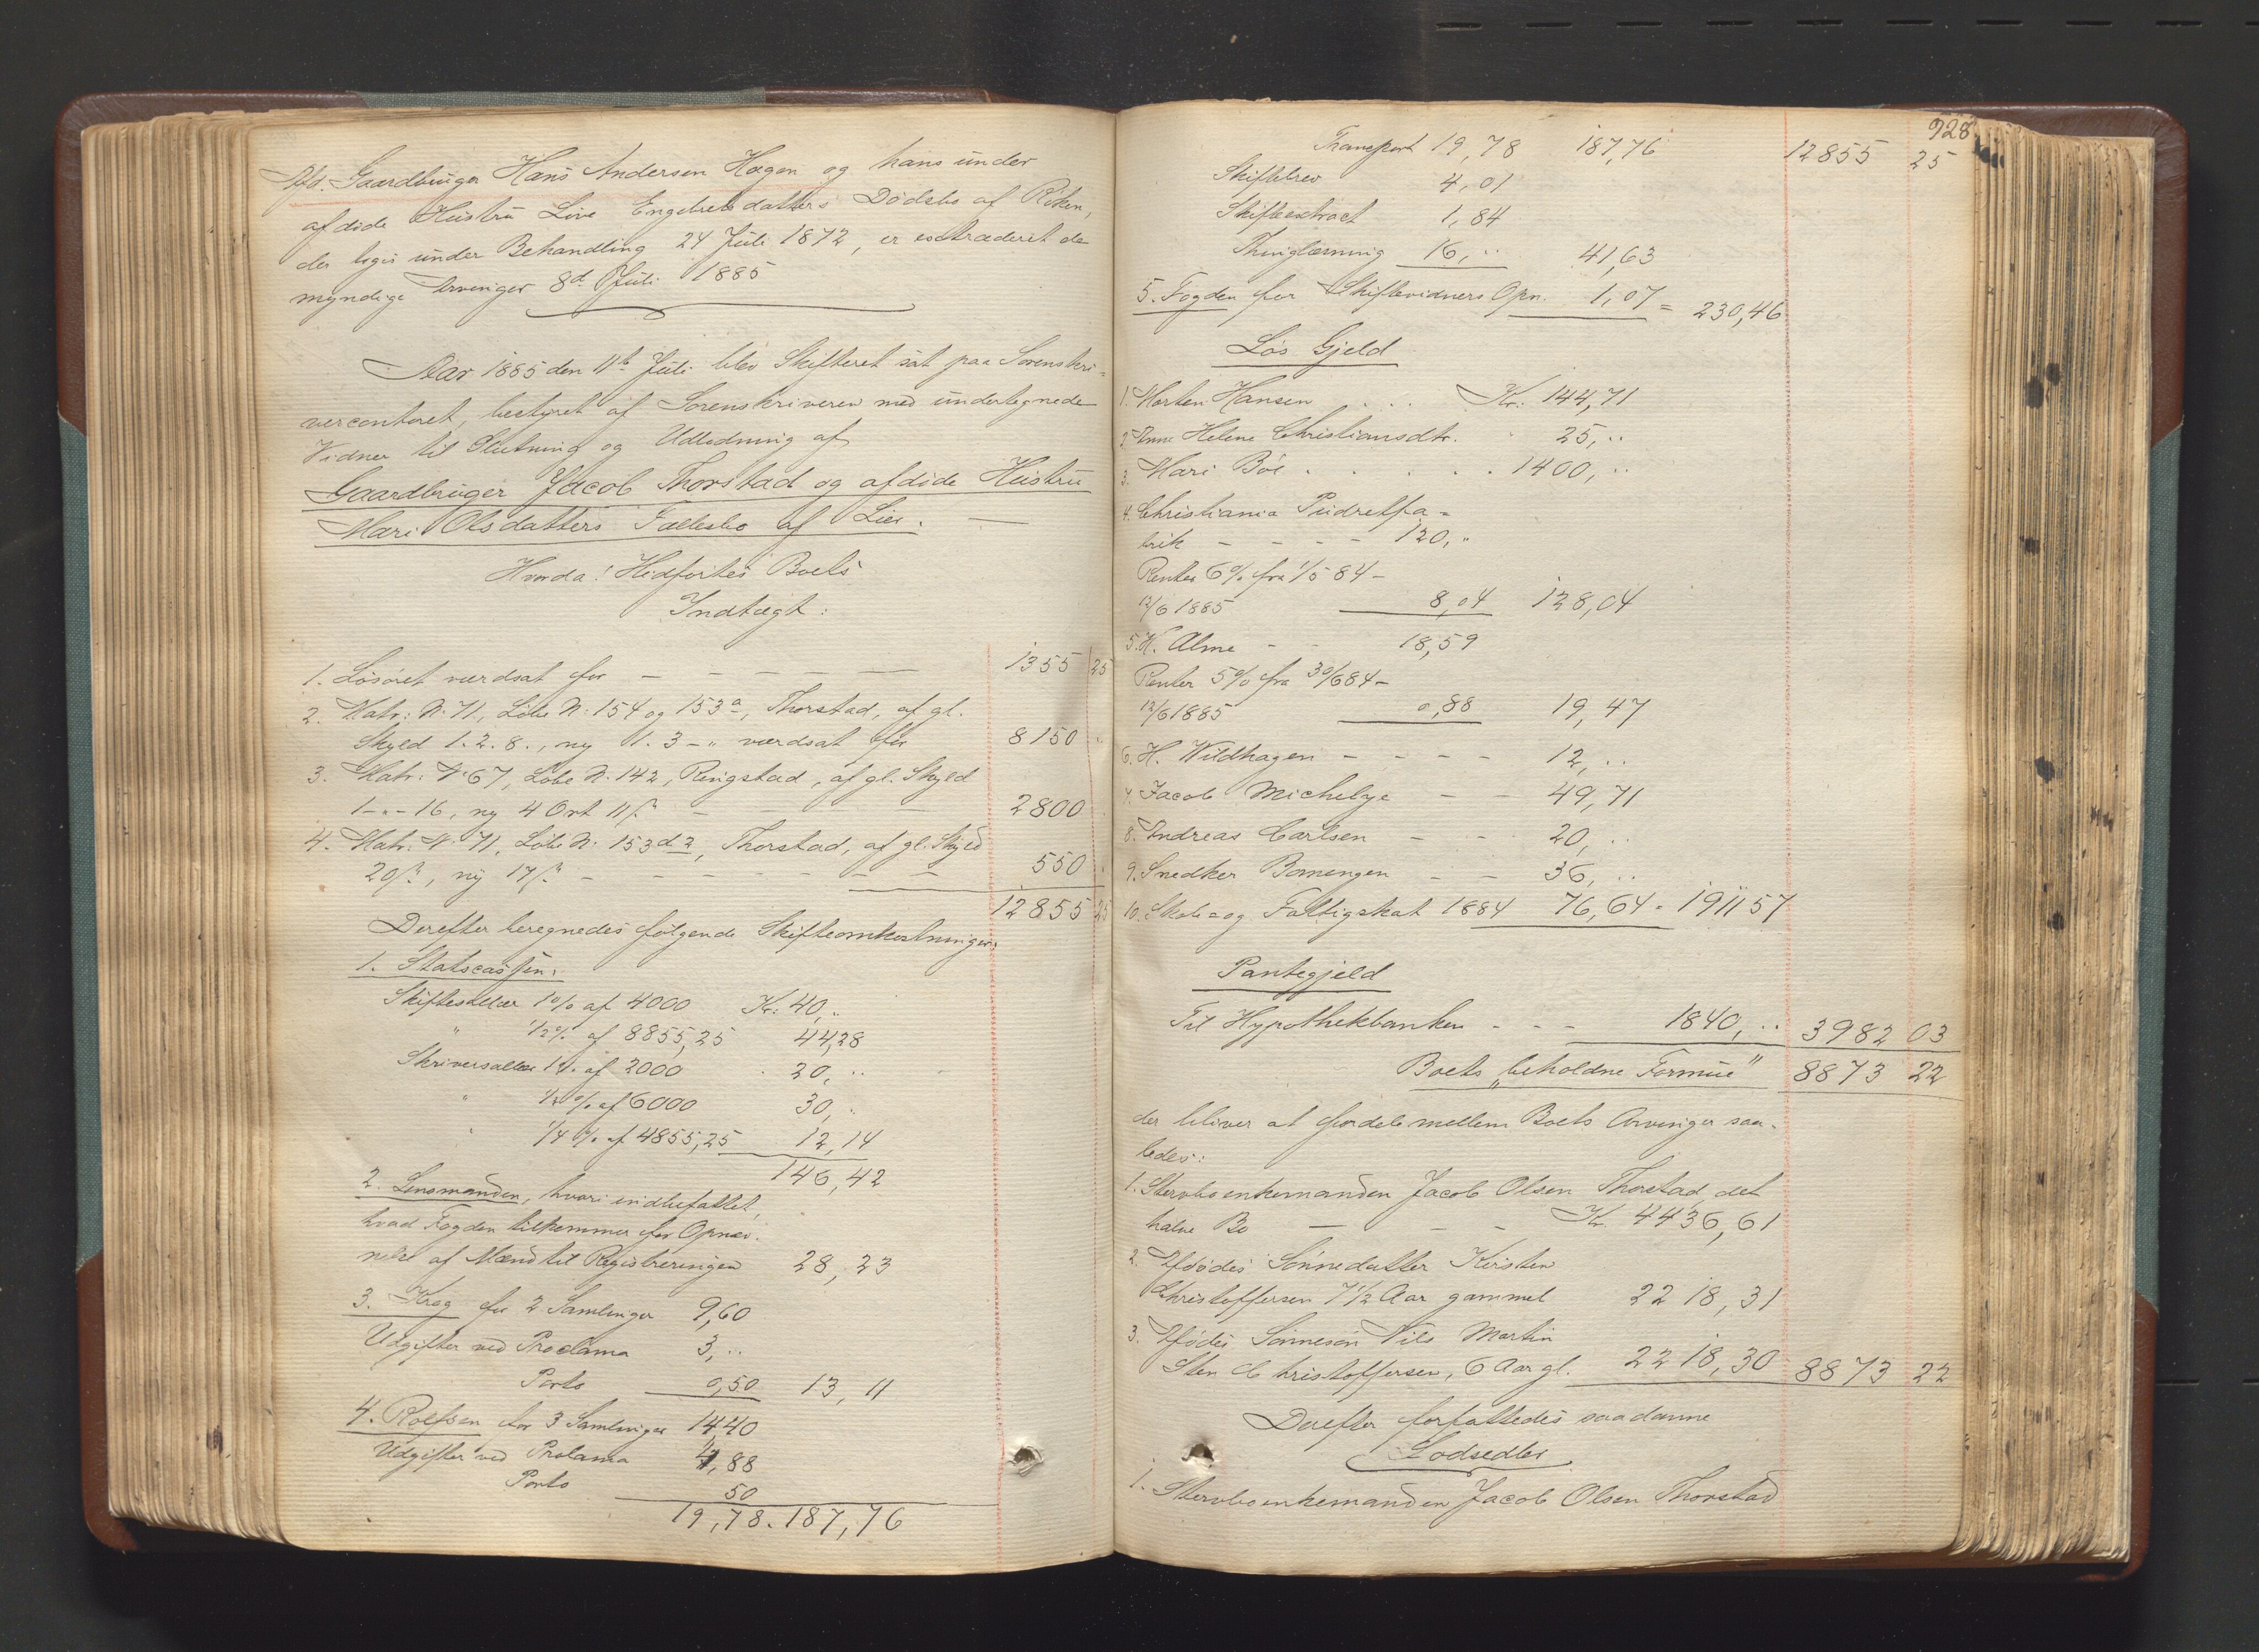 Afd. Gaardbruger Hans Andersen Hagen og hans under
afdøde Hustru Live Engebretsdatters Dødsbo af Røken,
der toges under Behandling 24 Juli 1872, er extraderet de
myndige Arvinger 8de Juli 1885
Aar 1885 den 11te Juli blev Skifteret sat paa Sorenskri-
vercontoret, bestyret af Sorenskriveren med undertegnede
Vidner til Slutning og Udlodning af
Gaardbruger Jacob Thorstad og afdøde Hustru
Mari Olsdatters Fællesbo af Lier. —
Hvorda: Hidførtes Boets
Indtægt:
1. Løsøret værdsat for — — — — — 1355 25
2. Matr: N. 71, Løbe N. 154 og 153a, Thorstad, af gl.
Skyld 1. 2. 8., ny 1. 3 - " værdsat for 8150 "
3. Matr: N. 67, Løbe N. 142, Ringstad, af gl. Skyld
1 - " - 16, ny 4 Ort 11 ß — — — 2800
4. Matr. N. 71, Løbe N. 153 d 2, Thorstad, af gl. Skyld
20 ß, ny 17 ß - - - - - - - 550
12855 25
Derefter beregnedes følgende Skifteomkostninger:
1. Statscassen:
Skiftesallær 1 % af 4000 Kr: 40, ..
" 1/2 % af 8855,25 44,28
Skriversallær 1 % af 2000 20, ..
" 1/2 % af 6000 30, ..
" 1/4 % af 4855,25 12,14
146,42
2. Lensmanden, hvori indbefattet,
hvad Fogden tilkommer for Opnæv-
nelse af Mænd til Registreringen 28,23
3. Krag for 2 Samlinger 9,60
Udgifter ved Proclama 3, ..
Porto 0,50 13,11
4. Rolfsen for 3 Samlinger 14,40
Udgifter ved Prolama 4,88
Porto 50
19,78. 187,76
928
Transport 19,78 187,76 12855 25
Skiftebrev 4,01
Skifteextract 1,84
Thinglæsning 16, .. 41,63
5. Fogden for Skiftevidners Opn. 1,07 = 230,46
Løs Gjeld
1. Morten Hansen . . . Kr: 144,71
2. Anne Helene Christiansdtr. . 25, ..
3. Mari Bøe . . . . . 1400, ..
4. Christiania Pudretfa-
brik - - - - 120, ..
Renter 6 % fra 1/5 84 -
12/6 1885 8,04 128,04
5. K. Alme - - 18,59
Renter 5 % fra 30/6 84 -
12/6 1885 0,88 19,47
6. H. Wildhagen - - - - 12, ..
7. Jacob Michelye - - 49,71
8. Andreas Carlsen - - 20, ..
9. Snedker Bomengen - - 36, ..
10. Skole og Fattigskat 1884 76,64 = 1911 57
Pantegjeld
Til Hypothekbanken - - - 1840, .. 3982 03
Boets „beholdne Formue" 8873 22
der bliver at fordele mellem Boets Arvinger saa-
ledes:
1. Stervboenkemanden Jacob Olsen Thorstad, det
halve Bo — - - Kr. 4436,61
2. Afdødes Sønnedatter Kirsten
Christoffersen 7 1/2 Aar gammel 2218,31
3. Afdødes Sønnesøn Nils Martin
Sten Christoffersen, 6 Aar gl. 2218,30 8873 22
Derefter forfattedes saadanne
Lodsedler
1. Stervboenkemanden Jacob Olsen Thorstad